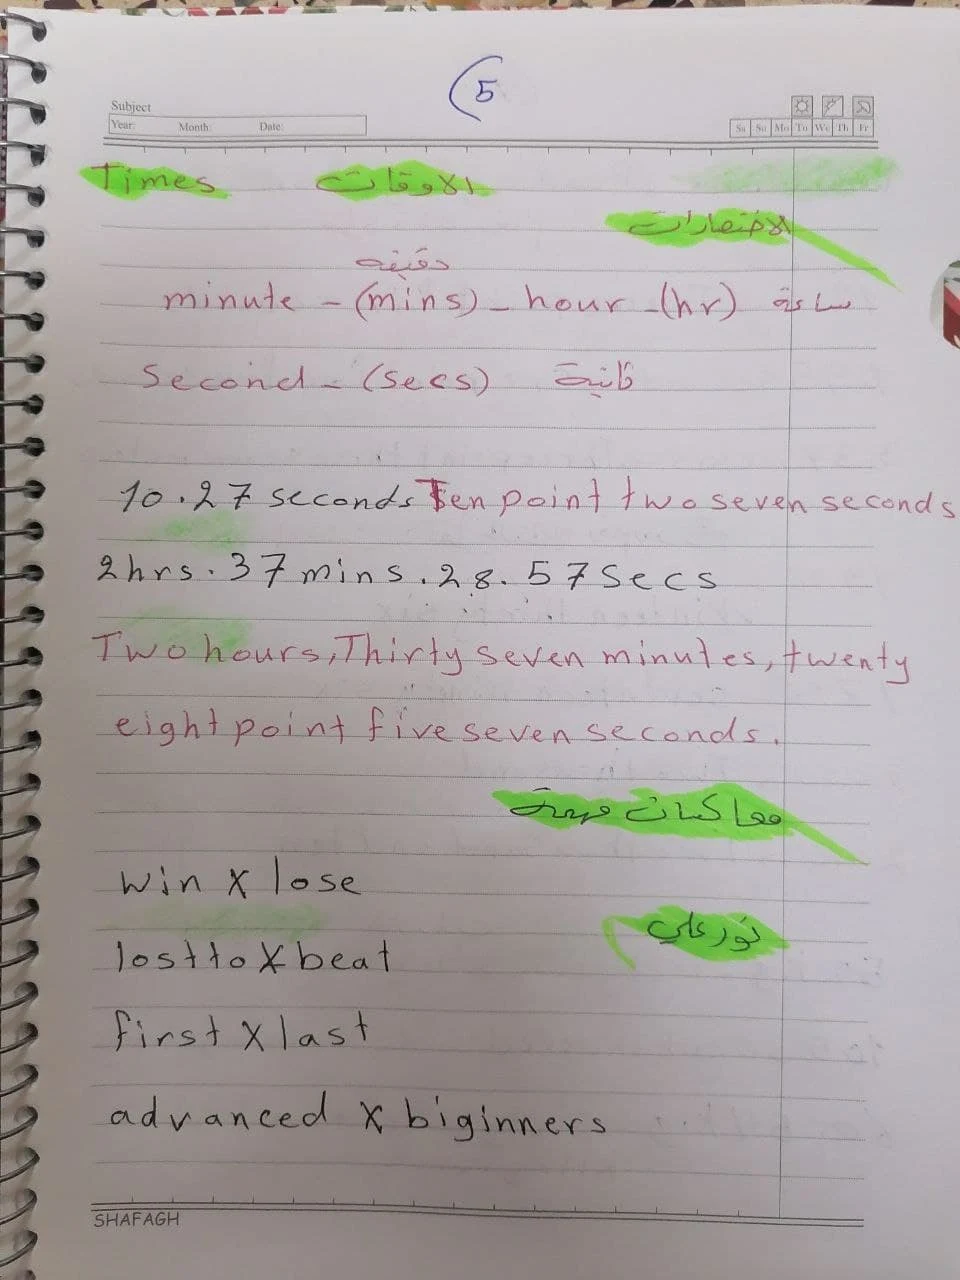 5
Subject
Year: Month: Date:
Sa Su Mo Tu We Th Fr
Times الاوقات
الاختصارات
دقيقه
minute - (mins) - hour - (hr) ساعة
Second - (secs) ثانية
10.27 seconds Ten point two seven seconds
2hrs. 37 mins. 28. 57 Secs
Two hours, Thirty seven minutes, twenty
eight point five seven seconds.
معاكسات مهمة
win X lose
نور علي
lost to X beat
first X last
advanced X biginners
SHAFAGH